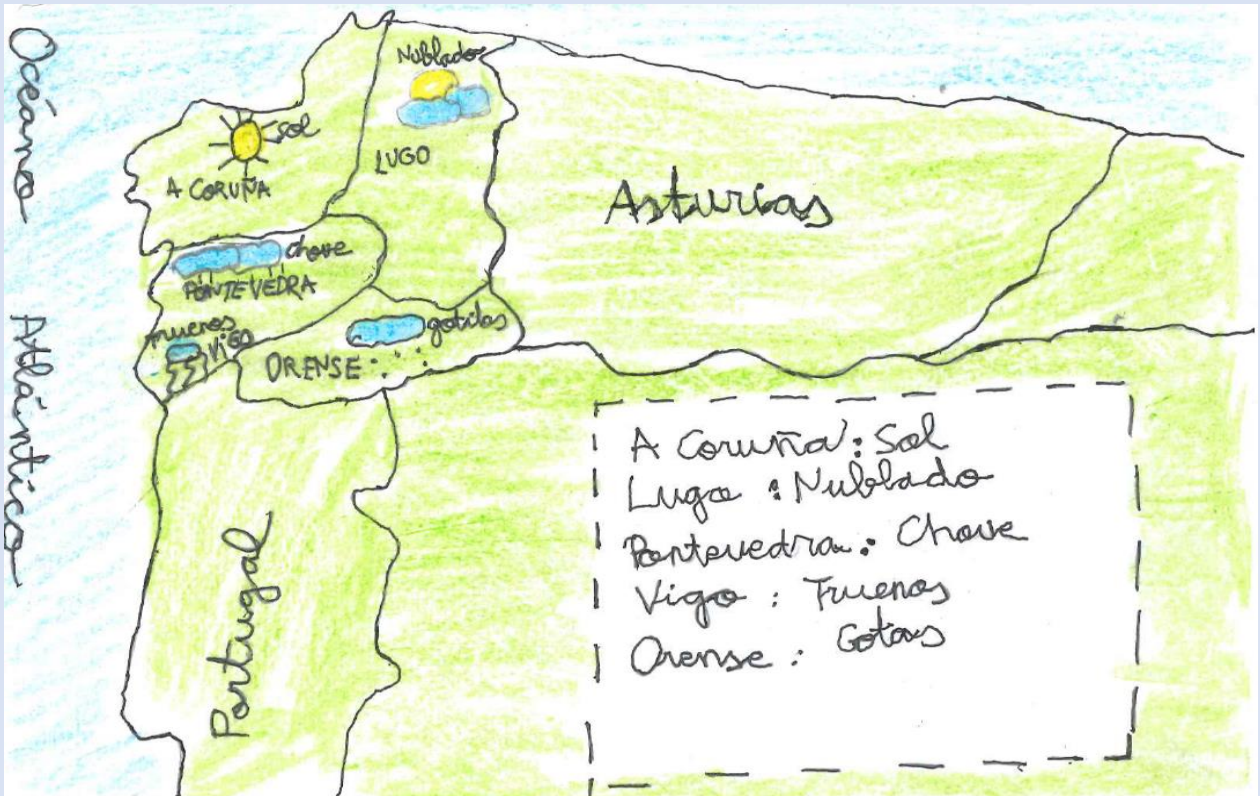 Océano Atlántico
Nublado
sol
LUGO
A CORUÑA
Asturias
chove
PONTEVEDRA
truenos
VIGO
gotitas
ORENSE
Portugal
A Coruña: Sol
Lugo : Nublado
Pontevedra: Chove
Vigo : Truenos
Orense : Gotas